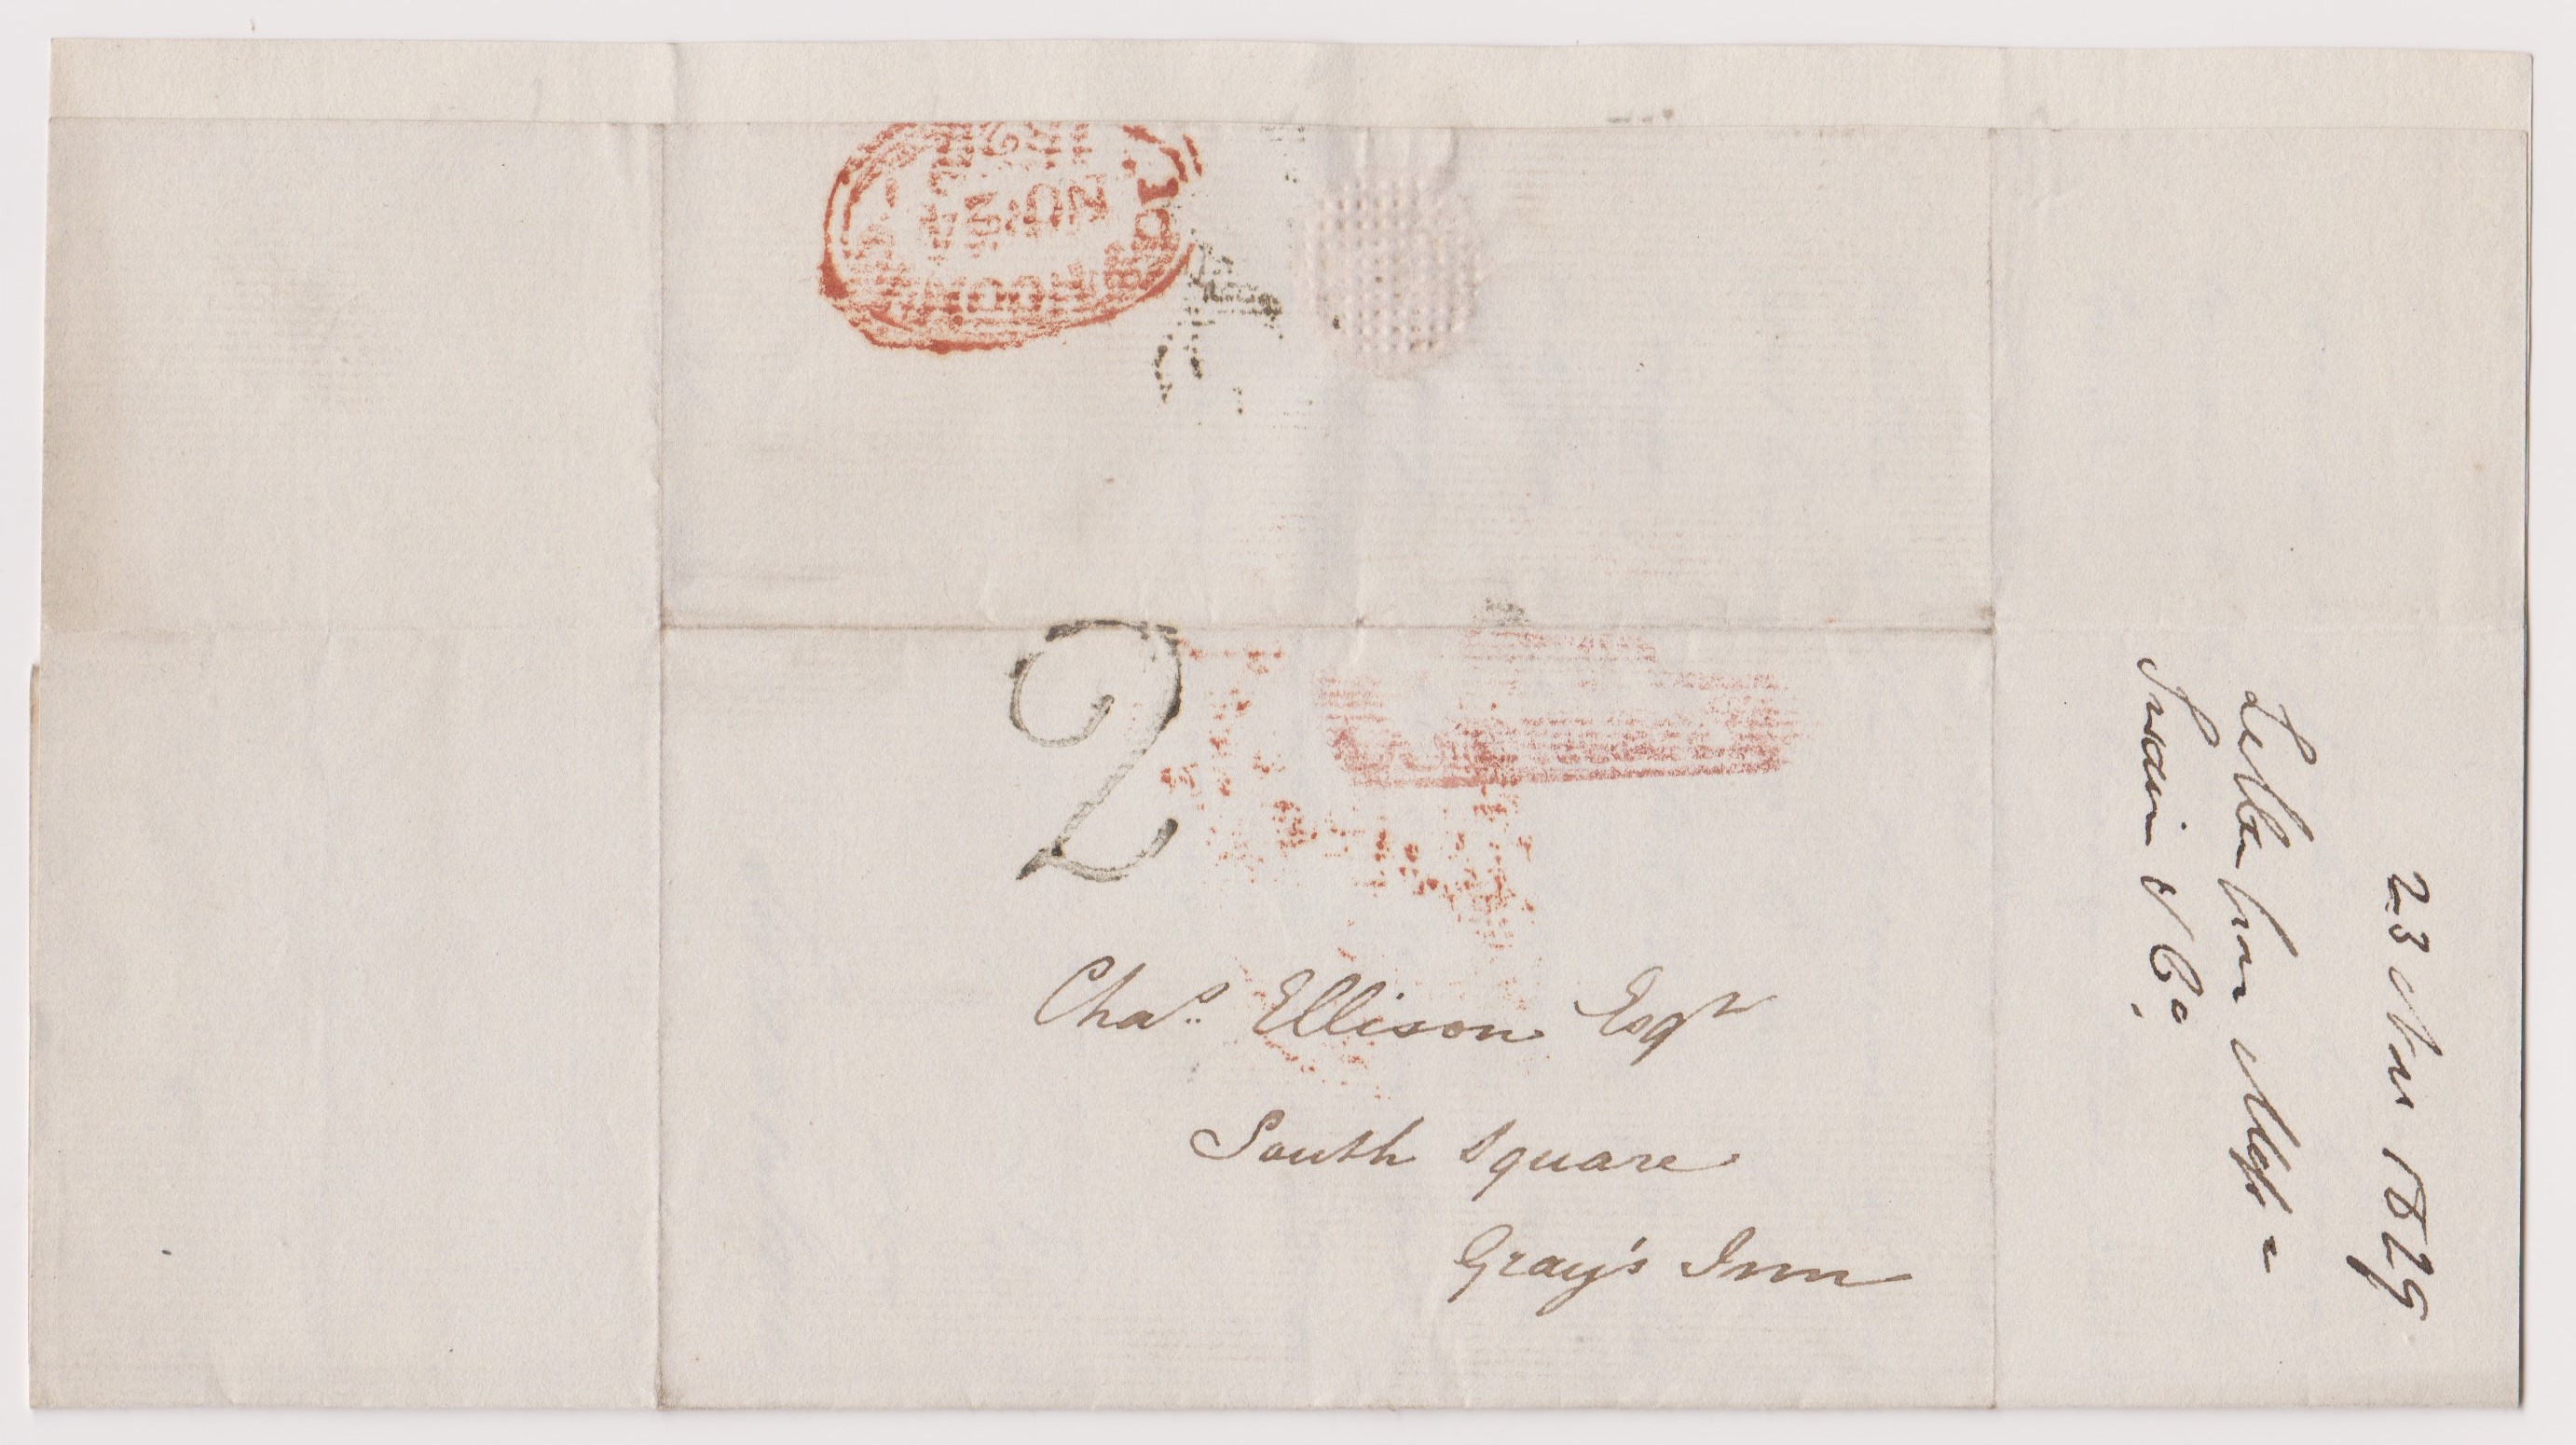 2
Chas. Ellison Esqr
South Square
Gray's Inn
23 Nov 1829
Letter from Messrs
Swain & Co.
NO 24
NOON